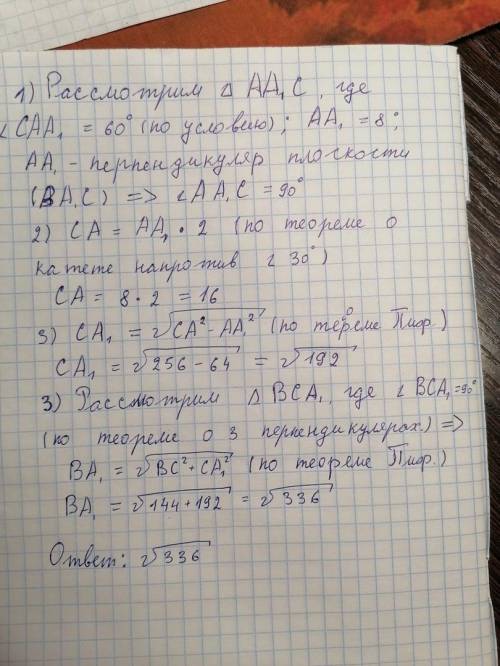 1) Рассмотрим △ AA₁C, где
∠CAA₁ = 60° (по условию); AA₁ = 8;
AA₁ - перпендикуляр плоскости
(BA₁C) => ∠AA₁C = 90°
2) CA = AA₁ · 2 (по теореме о
катете напротив ∠ 30°)
CA = 8 · 2 = 16
3) CA₁ = √CA² - AA₁² (по теореме Пиф.)
CA₁ = √256 - 64 = √192
3) Рассмотрим △ BCA₁, где ∠ BCA₁ = 90°
(по теореме о 3 перпендикулярах) =>
BA₁ = √BC² + CA₁² (по теореме Пиф.)
BA₁ = √144 + 192 = √336
Ответ: √336